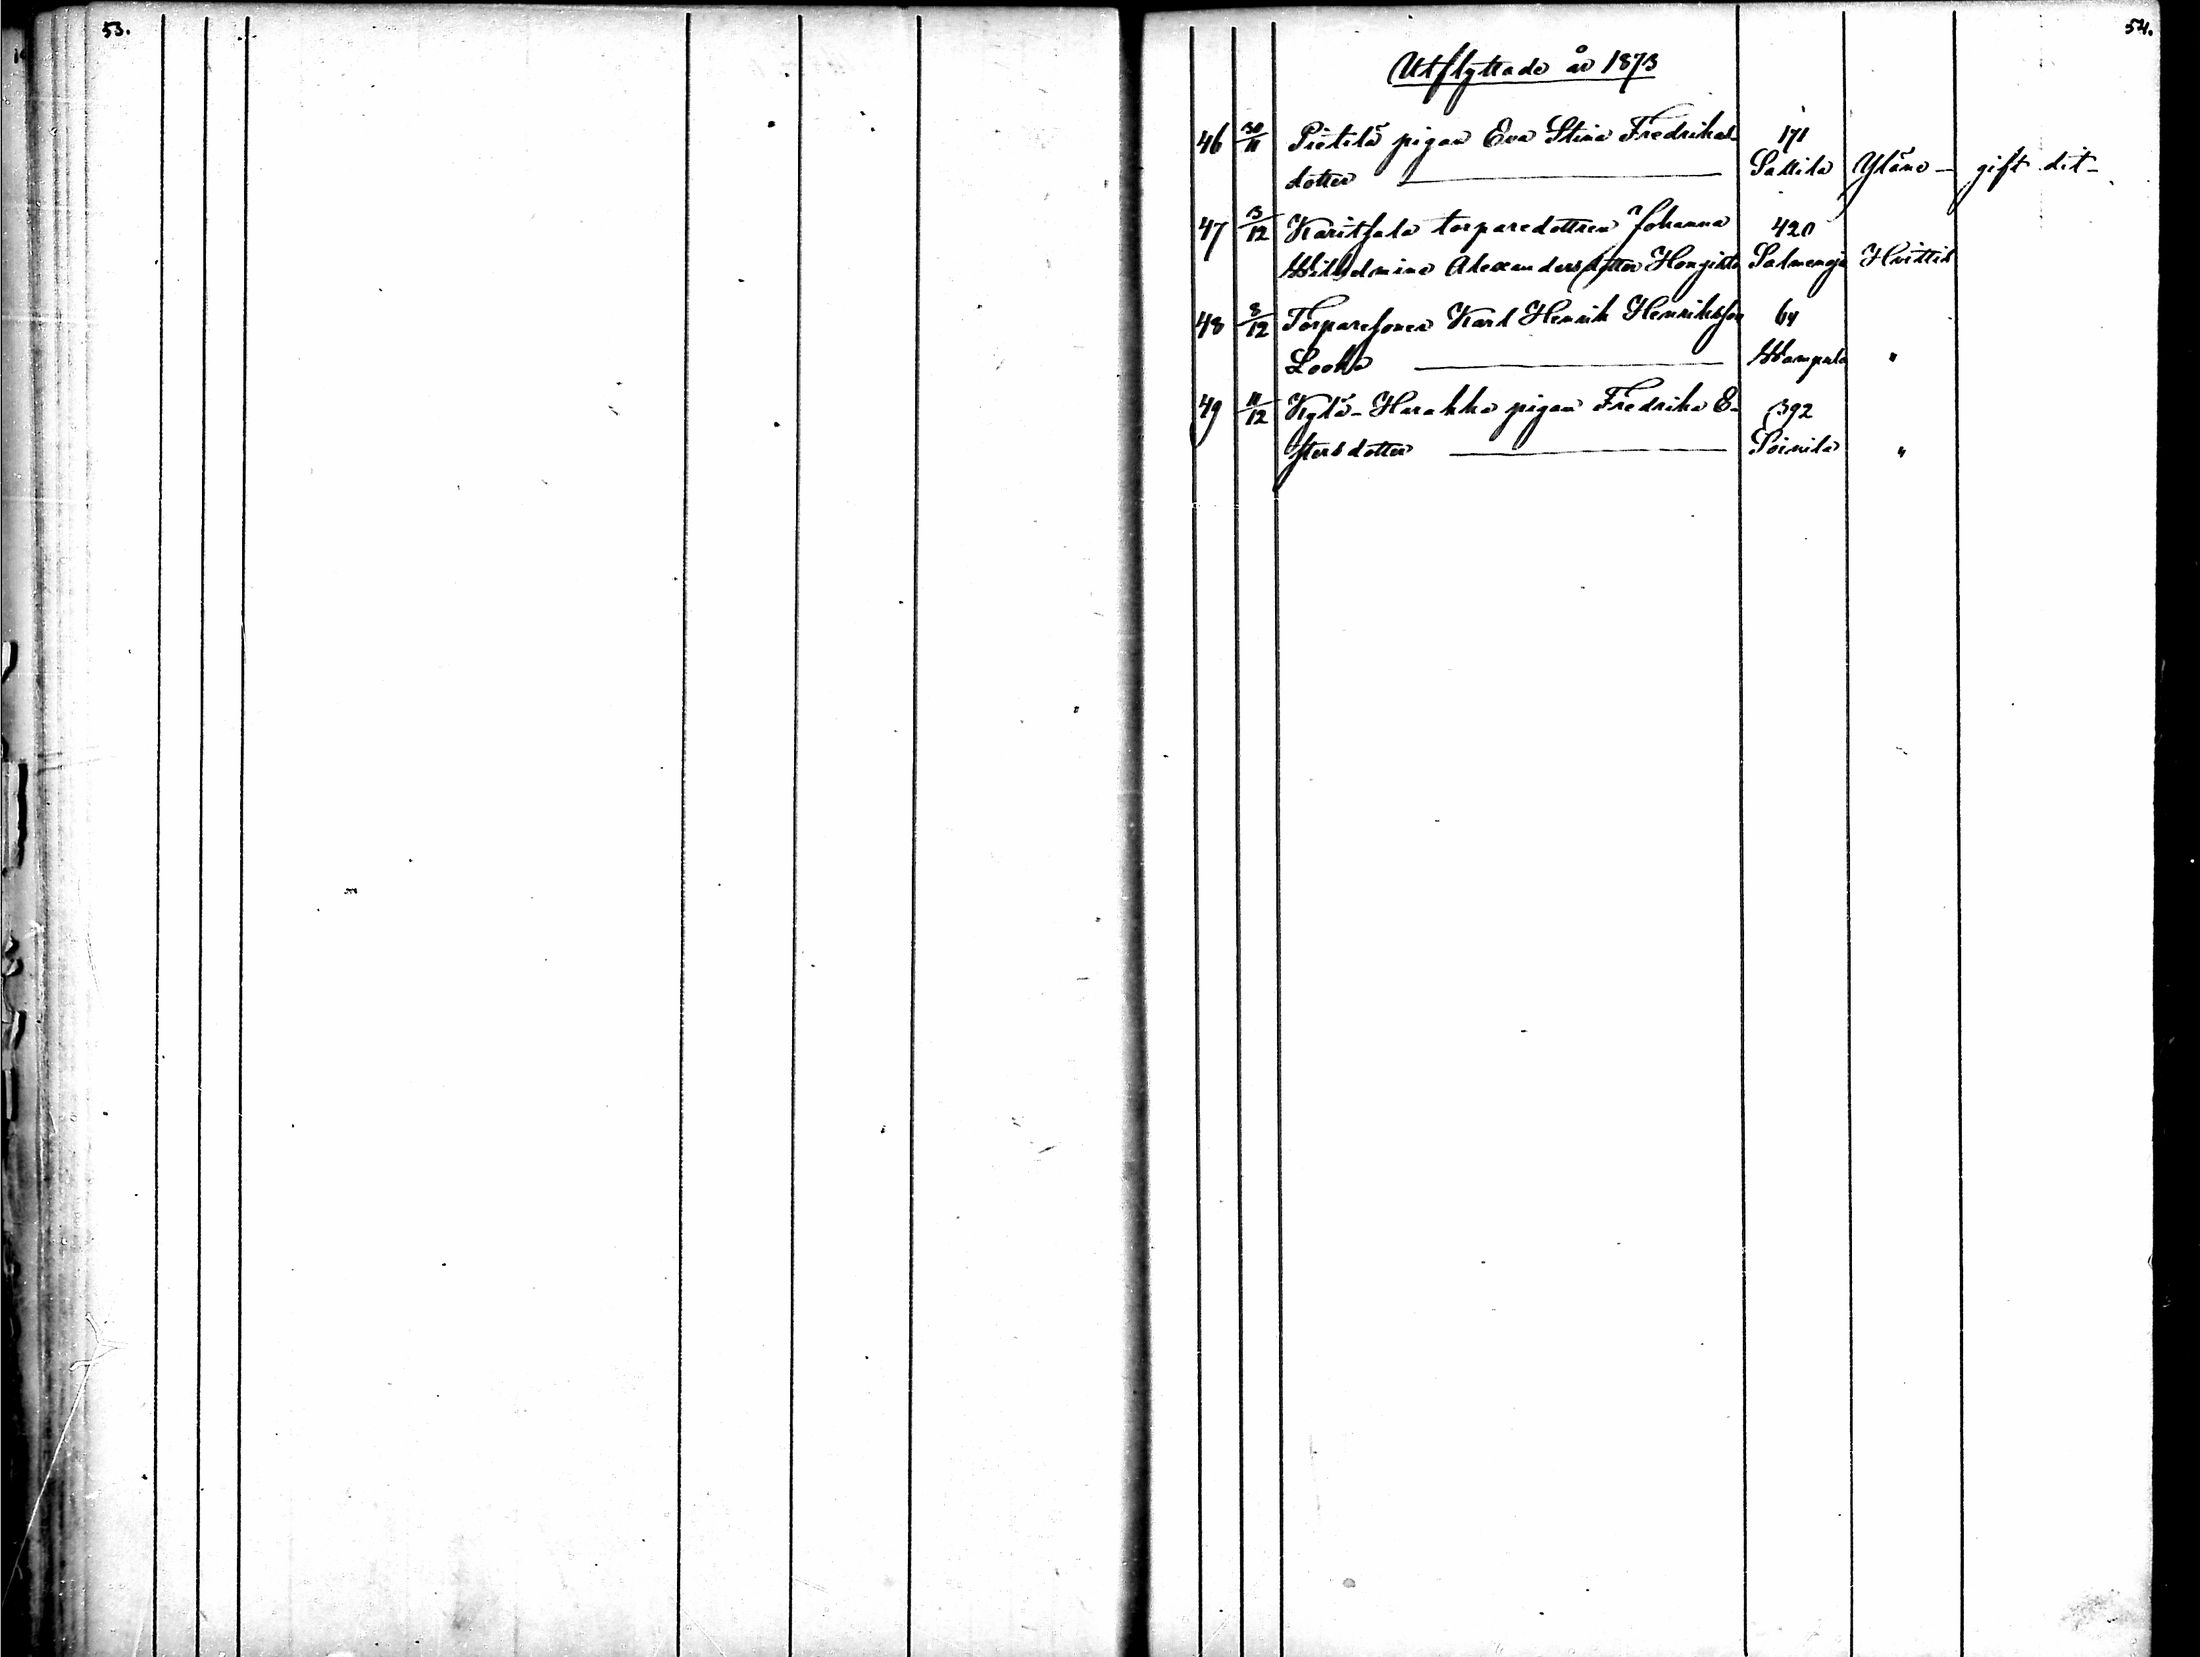 53.
54.
Utflyttade år 1873
46 30/11 Pietilä pigan Eva Stina Fredriks 171
dotter Sallila Yläne - gift dit -
47 3/12 Karitsala torparedottren Johanna 420
Wilhelmina Alexandersdotter Hongisto Salmenoja Hvittis
48 8/12 Torparesonen Karl Henrik Henriksson 64
Looka Wampula "
49 11/12 Kylä-Harakka pigan Fredrika E- 392
stersdotter Soinila "